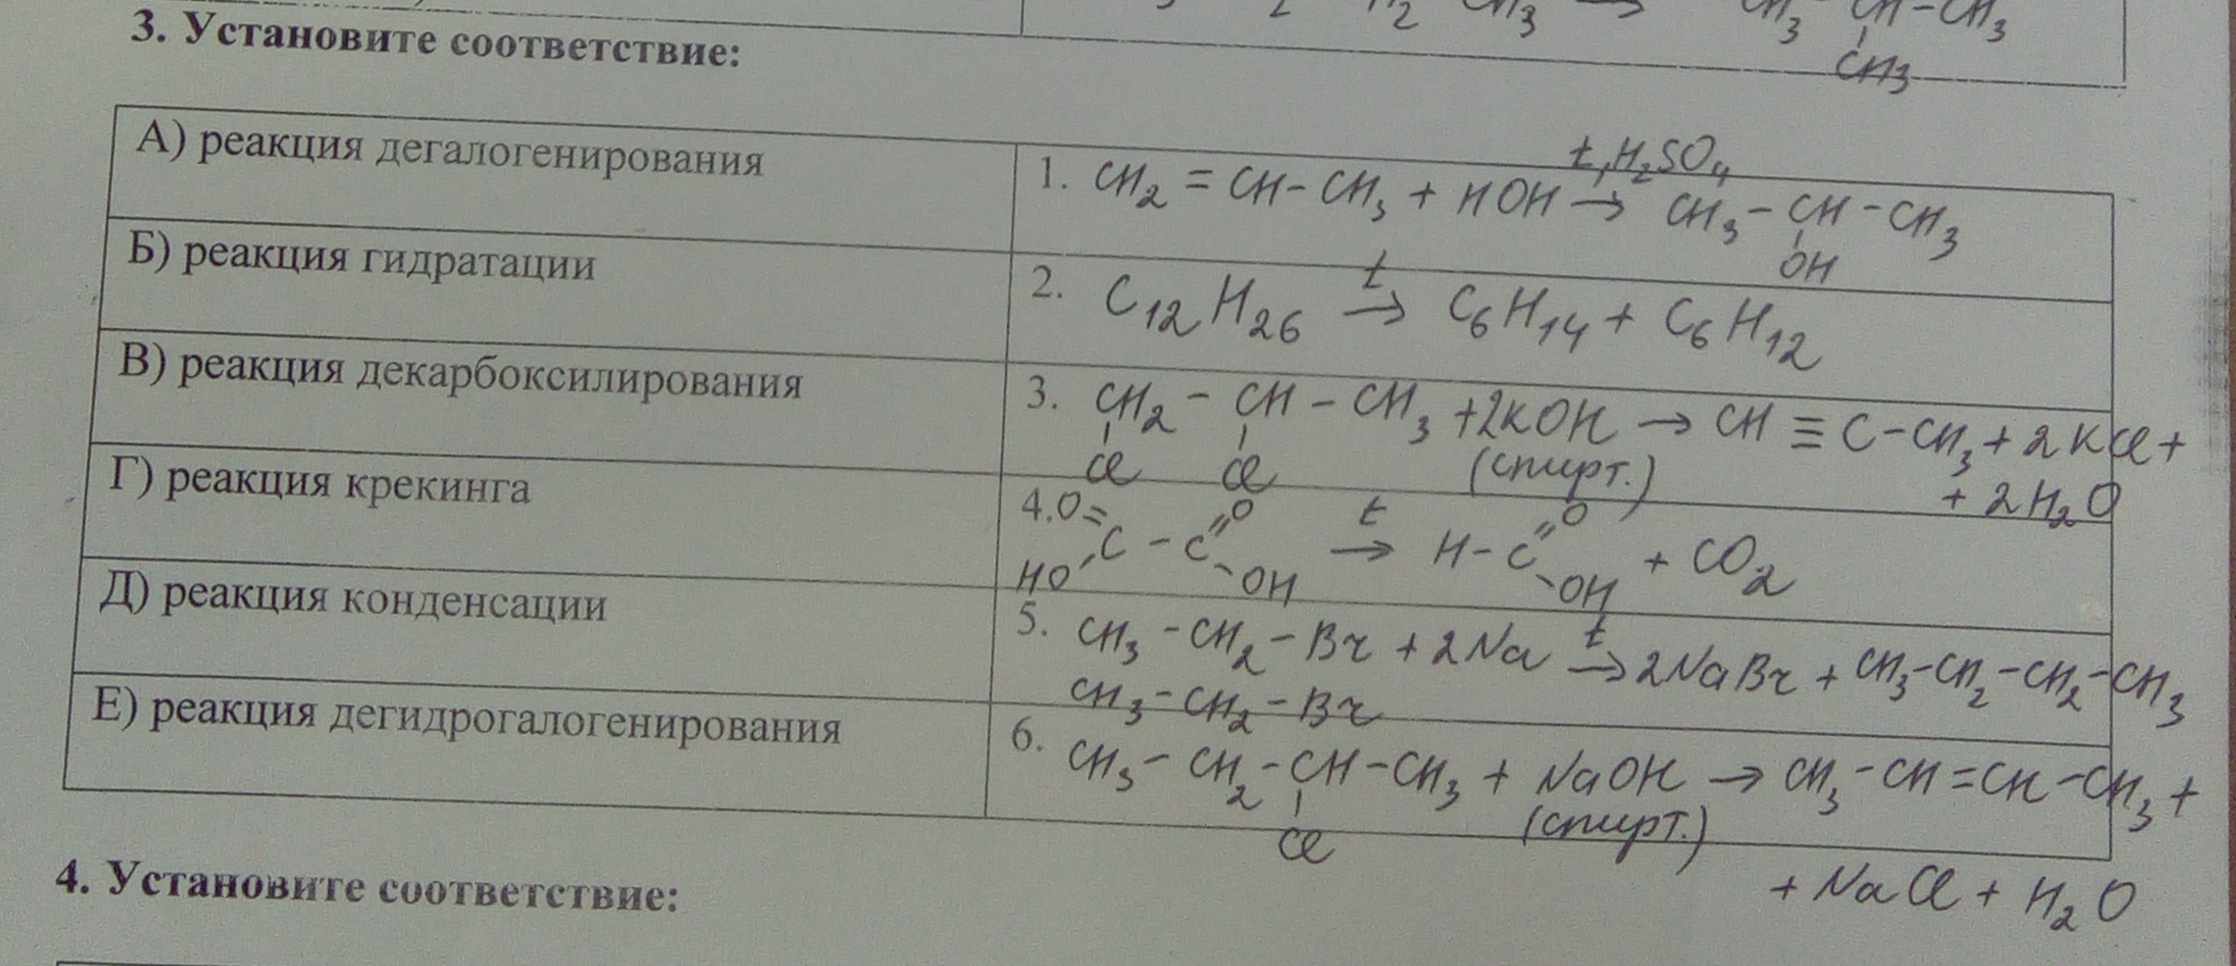 CH₃ CH-CH₃
CH₃
3. Установите соответствие:
А) реакция дегалогенирования
1. CH₂ = CH-CH₃ + HOH → CH₃-CH-CH₃
t, H₂SO₄
OH
Б) реакция гидратации
2. C₁₂H₂₆ →t C₆H₁₄ + C₆H₁₂
В) реакция декарбоксилирования
3. CH₂ - CH - CH₃ + 2KOH → CH ≡ C-CH₃ + 2KCl +
Cl Cl (спирт.) + 2H₂O
Г) реакция крекинга
4. O= C - C =O →t H-C =O + CO₂
HO OH OH
Д) реакция конденсации
5. CH₃-CH₂-Br + 2Na →t 2NaBr + CH₃-CH₂-CH₂-CH₃
CH₃-CH₂-Br
Е) реакция дегидрогалогенирования
6. CH₃-CH₂-CH-CH₃ + NaOH → CH₃-CH=CH-CH₃ +
Cl (спирт.)
+ NaCl + H₂O
4. Установите соответствие: